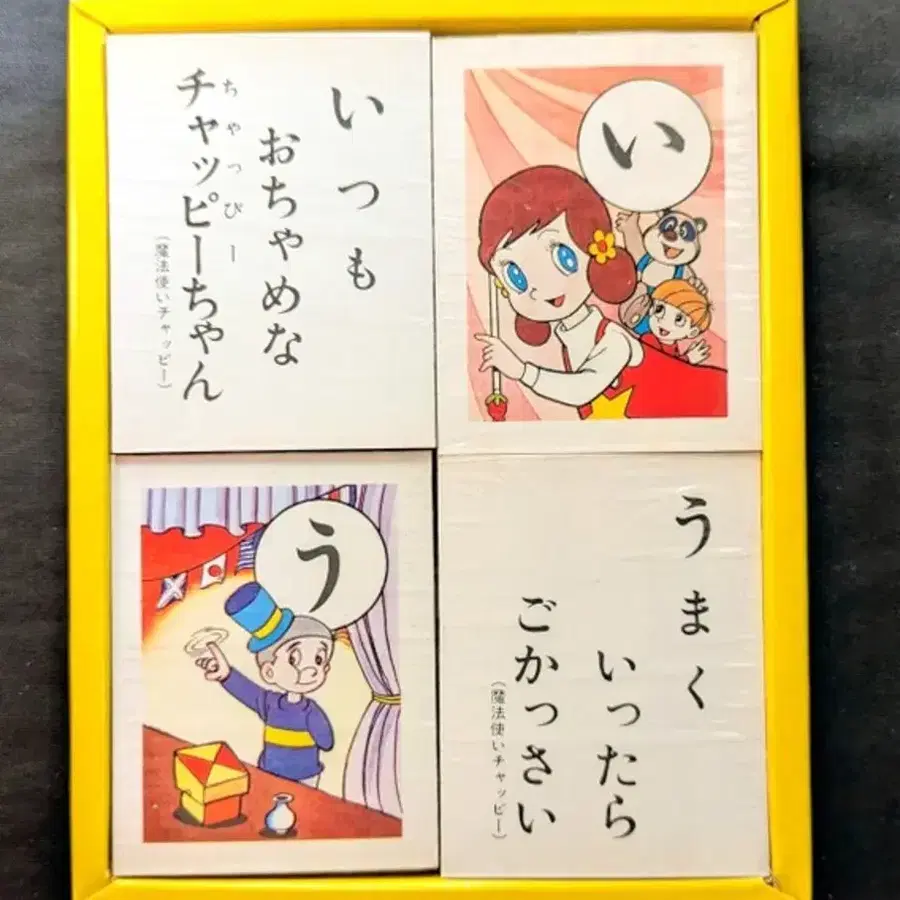 いつも
おちゃめな
チャッピーちゃん
ちゃっぴー
(魔法使いチャッピー)
い
う
うまく
いったら
ごかっさい
(魔法使いチャッピー)